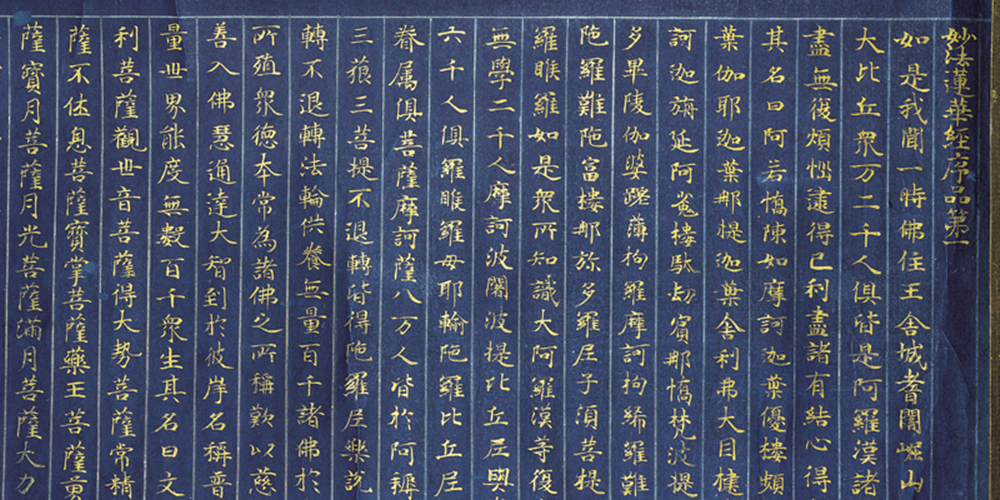 妙法蓮華經序品第一
如是我聞一時佛住王舍城耆闍崛山
大比丘衆万二千人俱皆是阿羅漢諸
盡無復煩惱逮得己利盡諸有結心得
其名曰阿若憍陳如摩訶迦葉優樓頻
葉伽耶迦葉那提迦葉舍利弗大目揵
訶迦旃延阿㝹樓馱劫賓那憍梵波提
多畢陵伽婆蹉薄拘羅摩訶拘絺羅難
陁羅難陁富樓那弥多羅尼子須菩提
羅睺羅如是衆所知識大阿羅漢等復
無學二千人摩訶波闍波提比丘尼與
六千人俱羅睺羅母耶輸陁羅比丘尼
眷属俱菩薩摩訶薩八万人皆於阿耨
三藐三菩提不退轉皆得陁羅尼樂説
轉不退轉法輪供養無量百千諸佛於
所殖衆德本常為諸佛之所稱歎以慈
善入佛慧通達大智到於彼岸名稱普
量世界能度無數百千衆生其名曰文
利菩薩觀世音菩薩得大勢菩薩常精
薩不休息菩薩寶掌菩薩藥王菩薩勇
薩寶月菩薩月光菩薩滿月菩薩大力